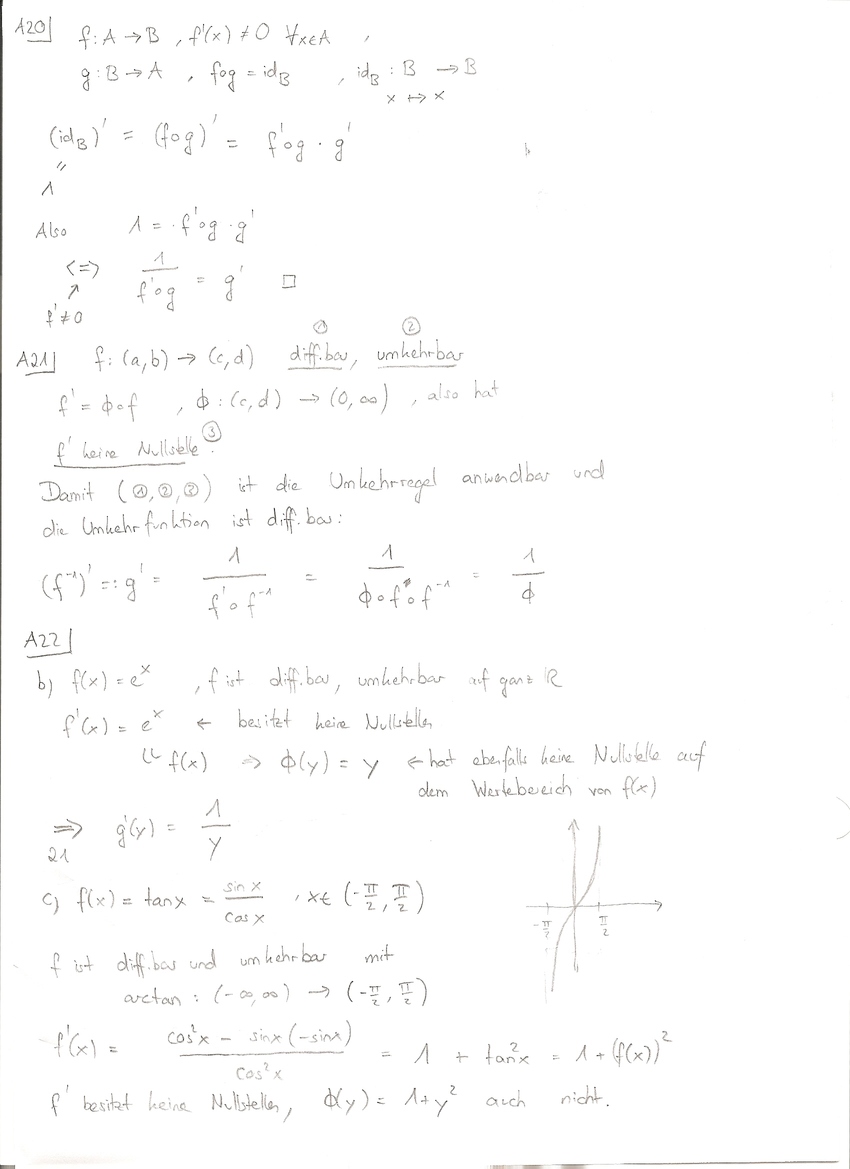 A20 f: A → B , f'(x) ≠ 0 ∀x∈A ,
g: B → A , f∘g = id_B , id_B : B → B
x ↦ x
(id_B)' = (f∘g)' = f'∘g · g'
"
1
Also 1 = · f'∘g · g'
<=> 1/(f'∘g) = g' □
↗
f' ≠ 0
① ②
A21 f: (a,b) → (c,d) diff.bar, umkehrbar
f' = ϕ∘f , ϕ : (c,d) → (0,∞) , also hat
f' keine Nullstelle ③.
Damit (①,②,③) ist die Umkehrregel anwendbar und
die Umkehrfunktion ist diff.bar:
(f⁻¹)' =: g' = 1/(f'∘f⁻¹) = 1/(ϕ∘f∘f⁻¹) = 1/ϕ
A22
b) f(x) = e^x , f ist diff.bar, umkehrbar auf ganz ℝ
f'(x) = e^x ← besitzt keine Nullstellen
" f(x) ⇒ ϕ(y) = y ← hat ebenfalls keine Nullstelle auf
dem Wertebereich von f(x)
⇒ g'(y) = 1/y
21
c) f(x) = tan x = sin x / cos x , x∈ (-π/2, π/2)
-π/2 π/2
f ist diff.bar und umkehrbar mit
arctan : (-∞,∞) → (-π/2, π/2)
f'(x) = (cos²x - sinx(-sinx)) / cos²x = 1 + tan²x = 1 + (f(x))²
f' besitzt keine Nullstellen, ϕ(y) = 1+y² auch nicht.